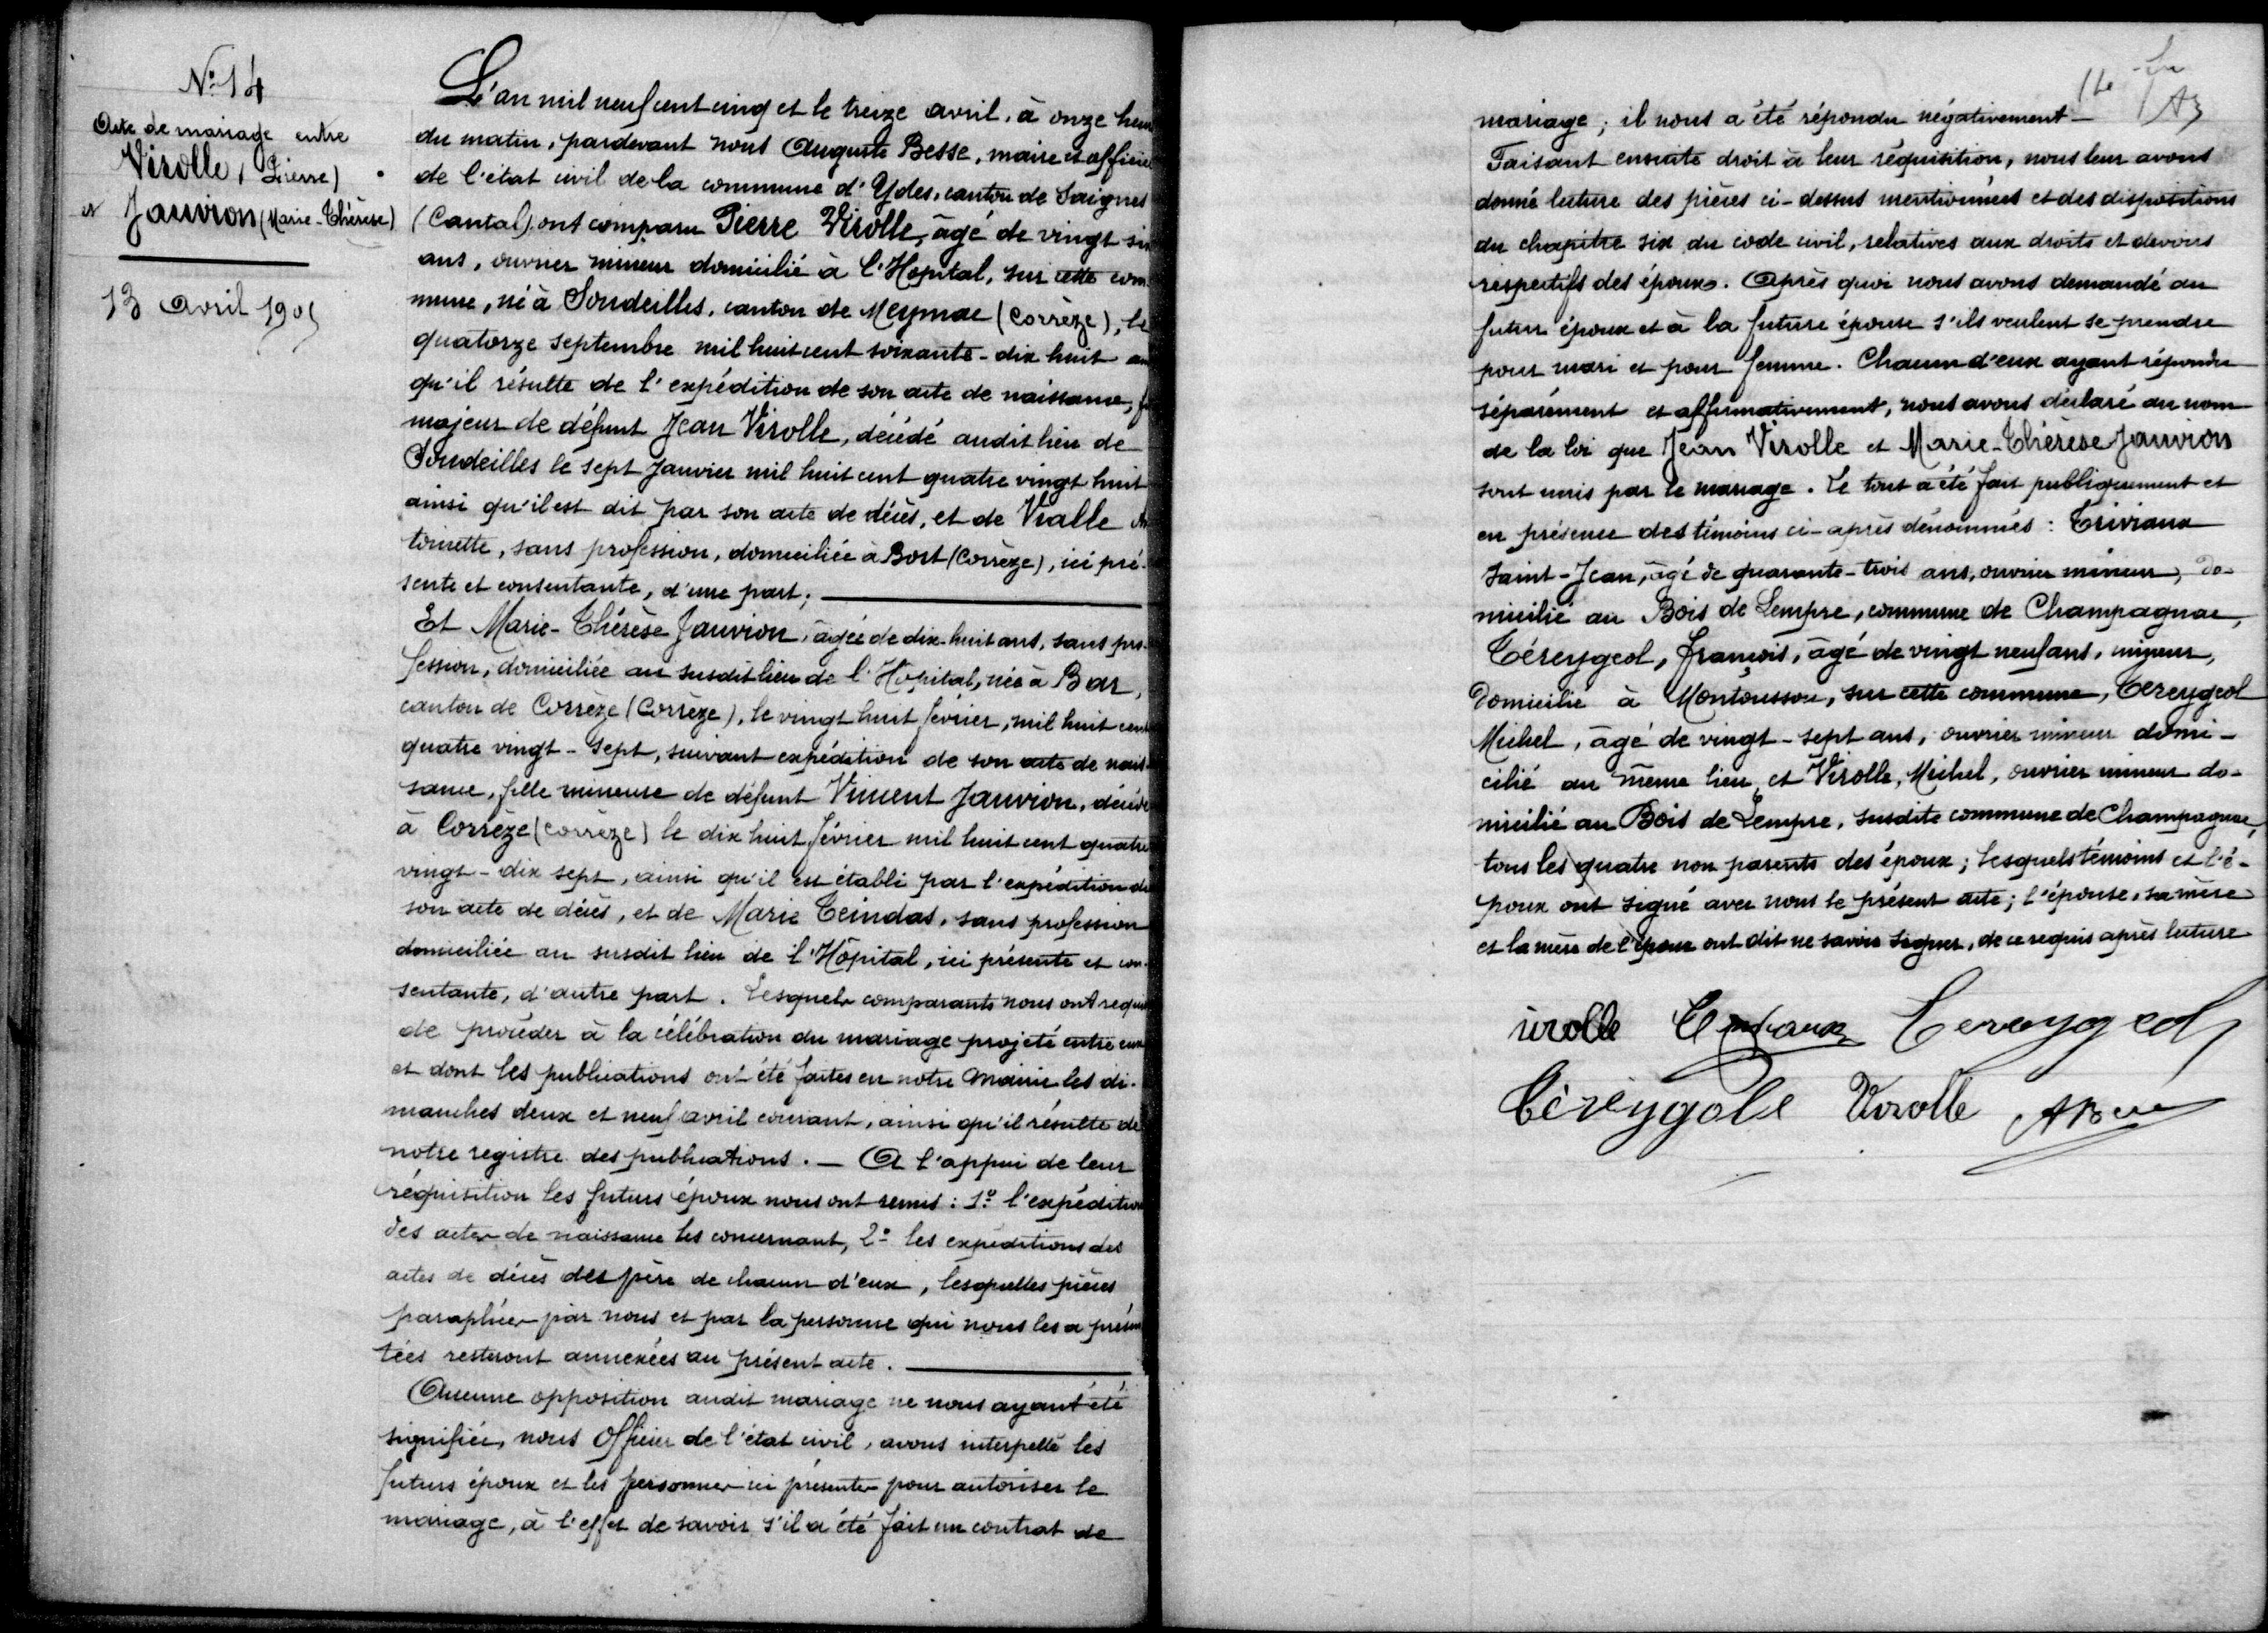 N° 14
Acte de mariage entre
Virolle, (Pierre)
et Jauvion (Marie-Thérèse)
13 avril 1905
L'an mil neuf cent cinq et le treize avril, à onze heu
du matin, pardevant nous Auguste Besse, maire et officie
de l'état civil de la commune d'Ydes, canton de Saignes
(Cantal) ont comparu Pierre Virolle, âgé de vingt six
ans, ouvrier mineur domicilié à l'Hopital, sur cette com
mune, né à Soudeilles, canton de Meymac (Corrèze), le
quatorze septembre mil huit cent soixante-dix huit ain
qu'il résulte de l'expédition de son acte de naissance, fi
majeur de défunt Jean Virolle, décédé audit lieu de
Soudeilles le sept janvier mil huit cent quatre vingt huit
ainsi qu'il est dit par son acte de décès, et de Vialle An
toinette, sans profession, domiciliée à Bort (Corrèze), ici pré-
sente et consentante, d'une part;
Et Marie-Thérèse Jauvion, âgée de dix-huit ans, sans pro-
fession, domiciliée au susdit lieu de l'Hôpital, née à Bar,
canton de Corrèze (Corrèze), le vingt huit février, mil huit cent
quatre vingt-sept, suivant expédition de son acte de nais-
sance, fille mineure de défunt Vincent Jauvion, décédé
à Corrèze (Corrèze) le dix huit février mil huit cent quatre
vingt-dix sept, ainsi qu'il est établi par l'expédition de
son acte de décès, et de Marie Teindas, sans profession
domiciliée au susdit lieu de l'Hôpital, ici présente et con-
sentante, d'autre part. Lesquels comparants nous ont requis
de procéder à la célébration du mariage projeté entre eux
et dont les publications ont été faites en notre mairie les di-
manches deux et neuf avril courant, ainsi qu'il résulte de
notre registre des publications. — A l'appui de leur
réquisition les futurs époux nous ont remis : 1° l'expédition
des actes de naissance les concernant, 2° les expéditions des
actes de décès des père de chacun d'eux, lesquelles pièces
paraphées par nous et par la personne qui nous les a présen
tées resteront annexées au présent acte.
Aucune opposition audit mariage ne nous ayant été
signifiée, nous officier de l'état civil, avons interpellé les
futurs époux et les personnes ici présentes pour autoriser le
mariage, à l'effet de savoir s'il a été fait un contrat de
mariage; il nous a été répondu négativement —
Faisant ensuite droit à leur réquisition, nous leur avons
donné lecture des pièces ci-dessus mentionnées et des dispositions
du chapitre six du code civil, relatives aux droits et devoirs
respectifs des époux. Après quoi nous avons demandé au
futur époux et à la future épouse s'ils veulent se prendre
pour mari et pour femme. Chacun d'eux ayant répondu
séparément et affirmativement, nous avons déclaré au nom
de la loi que Jean Virolle et Marie-Thérèse Jauvion
sont unis par le mariage. Le tout a été fait publiquement et
en présence des témoins ci-après dénommés : Triviaux
Saint-Jean, âgé de quarante-trois ans, ouvrier mineur, do-
micilié au Bois de Lempre, commune de Champagnac,
Téreygeol, François, âgé de vingt neuf ans, mineur,
domicilié à Montousson, sur cette commune, Tereygeol
Michel, âgé de vingt-sept ans, ouvrier mineur domi-
cilié au même lieu et Virolle, Michel, ouvrier mineur do-
micilié au Bois de Lempre, susdite commune de Champagnac,
tous les quatre non parents des époux; lesquels témoins et l'é-
poux ont signé avec nous le présent acte; l'épouse, sa mère
et la mère de l'époux ont dit ne savoir signer, de ce requis après lecture
virolle Tereygeol
Téreygole Virolle